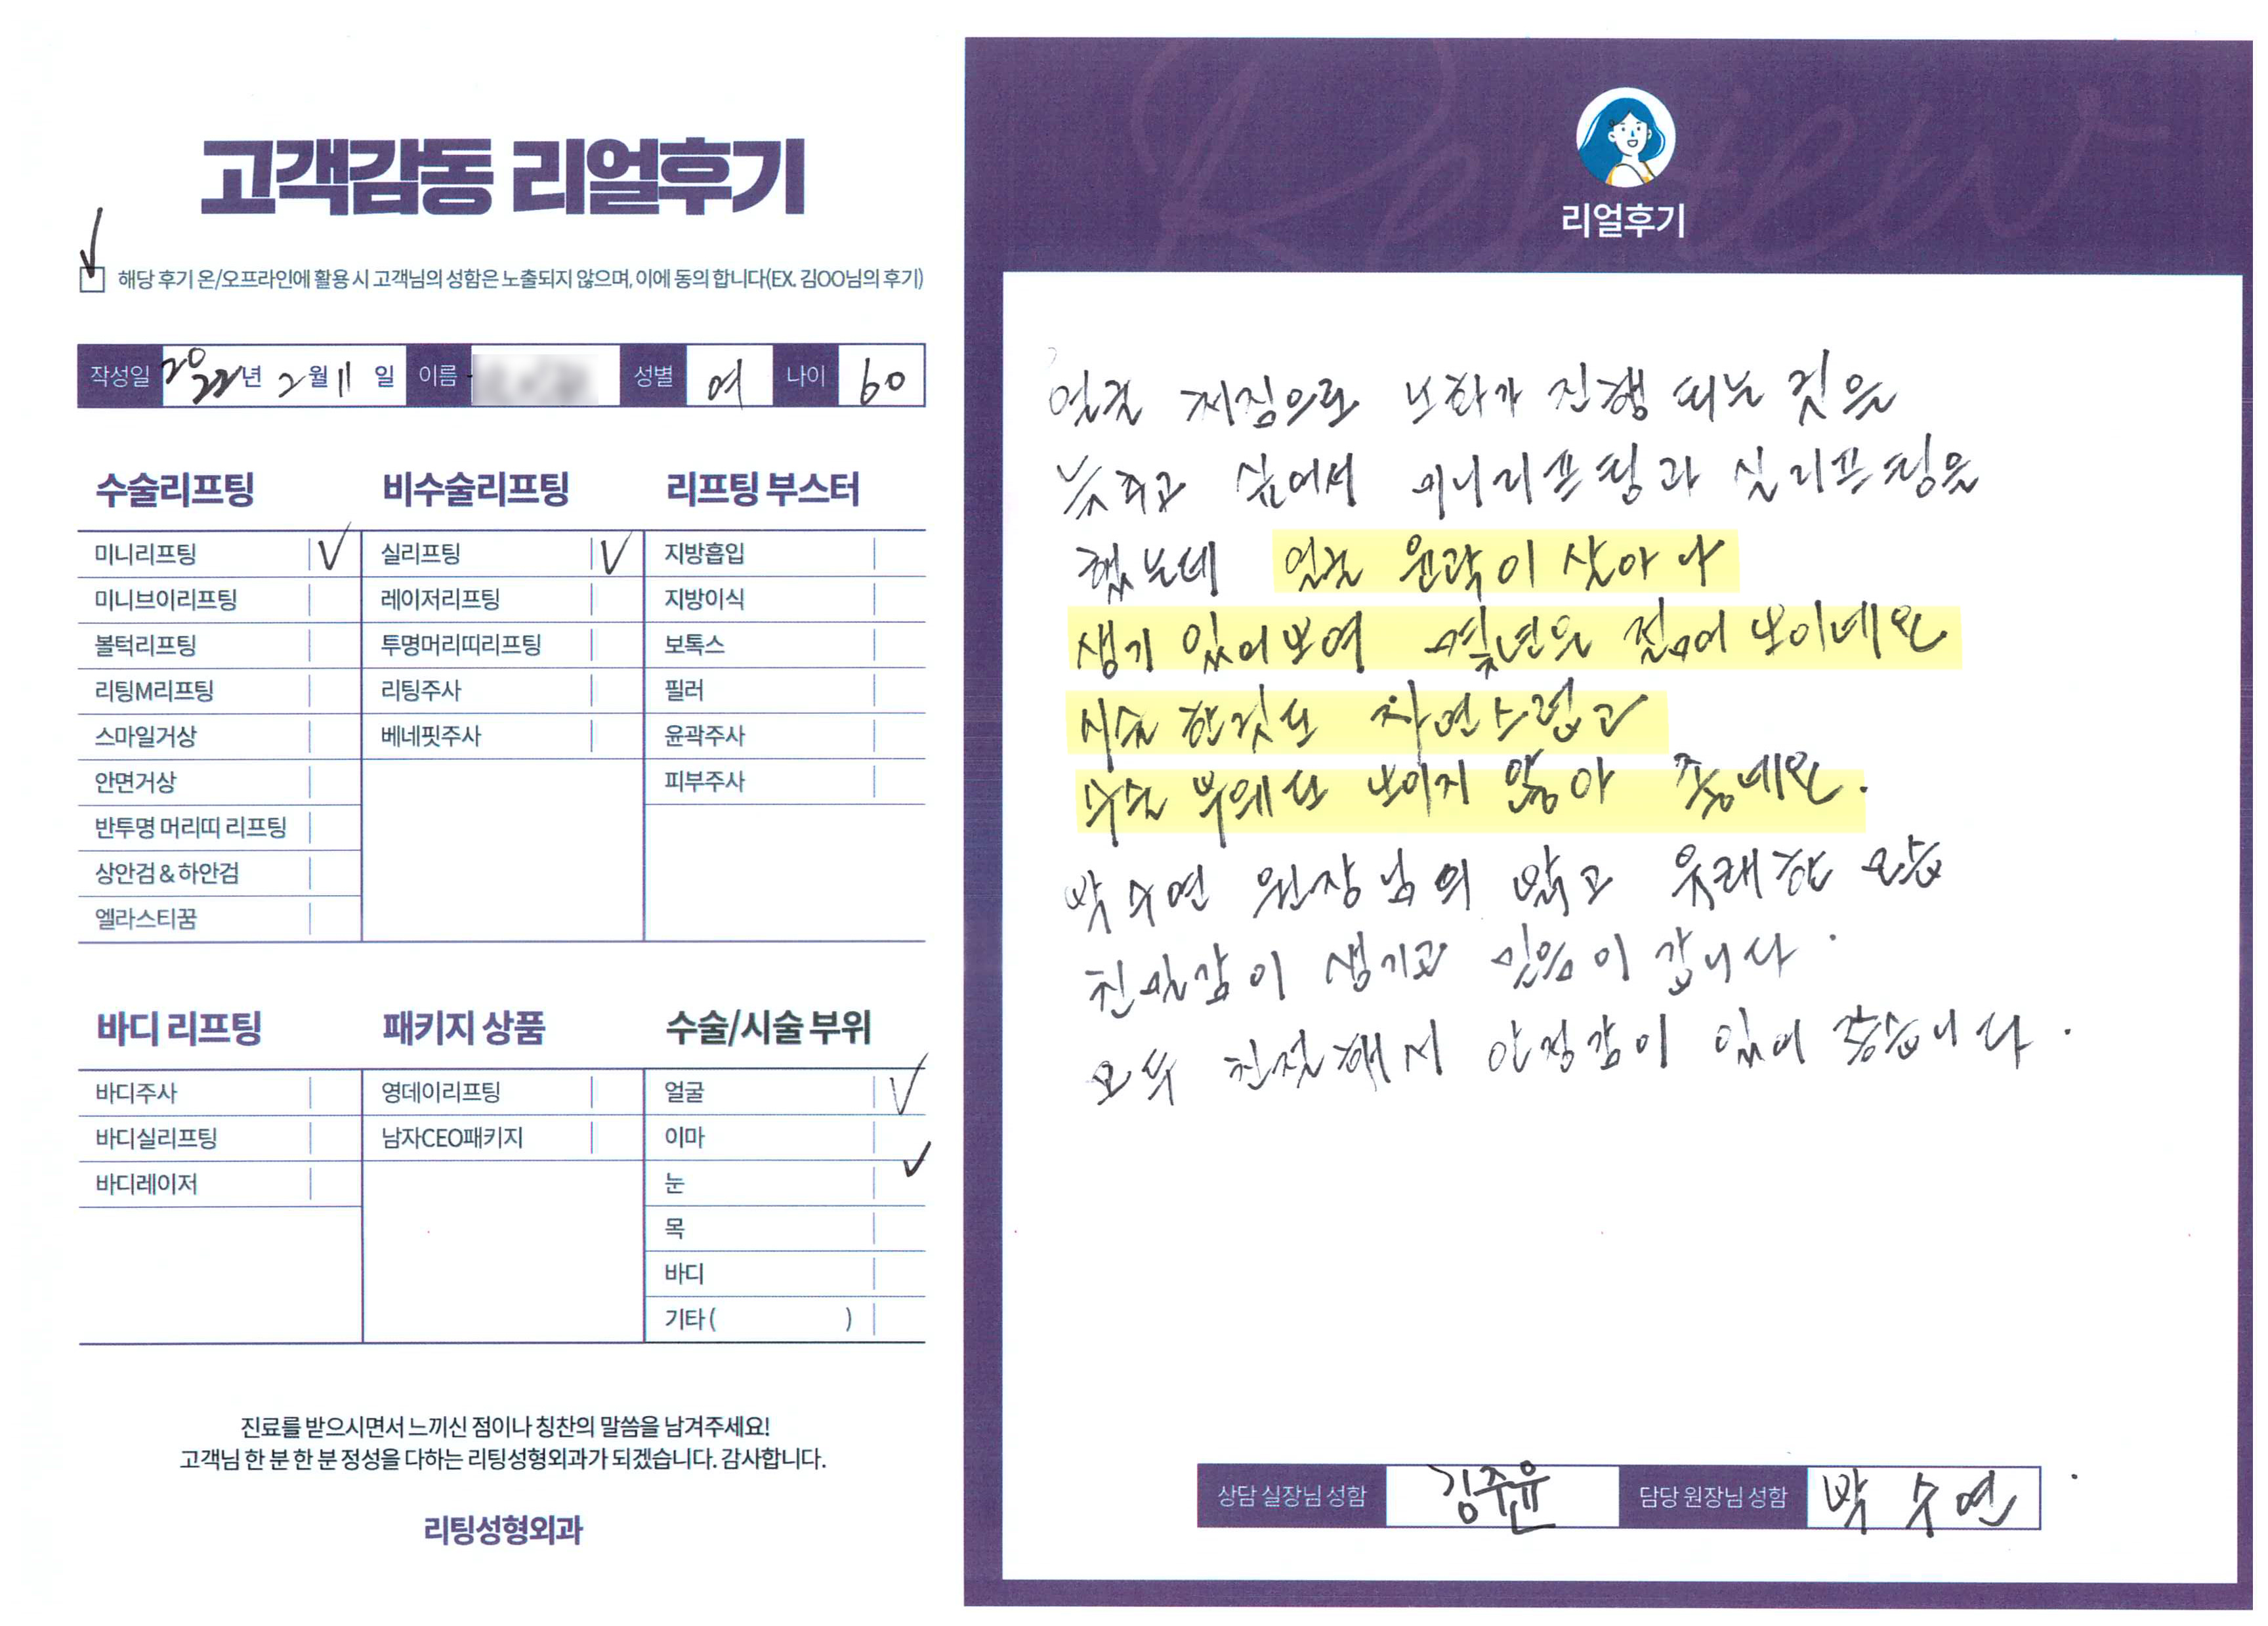 고객감동 리얼후기
해당 후기 온/오프라인에 활용 시 고객님의 성함은 노출되지 않으며, 이에 동의 합니다(EX. 김OO님의 후기)
작성일 2022년 2월 11일 이름 성별 여 나이 60
수술리프팅
미니리프팅 V
미니브이리프팅
볼턱리프팅
리팅M리프팅
스마일거상
안면거상
반투명 머리띠 리프팅
상안검 & 하안검
엘라스티꿈
비수술리프팅
실리프팅 V
레이저리프팅
투명머리띠리프팅
리팅주사
베네핏주사
리프팅 부스터
지방흡입
지방이식
보톡스
필러
윤곽주사
피부주사
바디 리프팅
바디주사
바디실리프팅
바디레이저
패키지 상품
영데이리프팅
남자CEO패키지
수술/시술 부위
얼굴 ✓
이마
눈 ✓
목
바디
기타 ( )
진료를 받으시면서 느끼신 점이나 칭찬의 말씀을 남겨주세요!
고객님 한 분 한 분 정성을 다하는 리팅성형외과가 되겠습니다. 감사합니다.
리팅성형외과
Review
리얼후기
얼굴 쳐짐으로 노화가 진행 되는 것을
늦추고 싶어서 미니리프팅과 실리프팅을
했는데 얼굴 윤곽이 살아나
생기 있어보여 몇년은 젊어 보이네요
시술 한것도 자연스럽고
수술 부위도 보이지 않아 좋네요.
박수연 원장님의 맑고 유쾌한 모습
친밀감이 생기고 믿음이 갑니다.
모두 친절해서 안정감이 있어 좋습니다.
상담 실장님 성함 김주윤 담당 원장님 성함 박수연